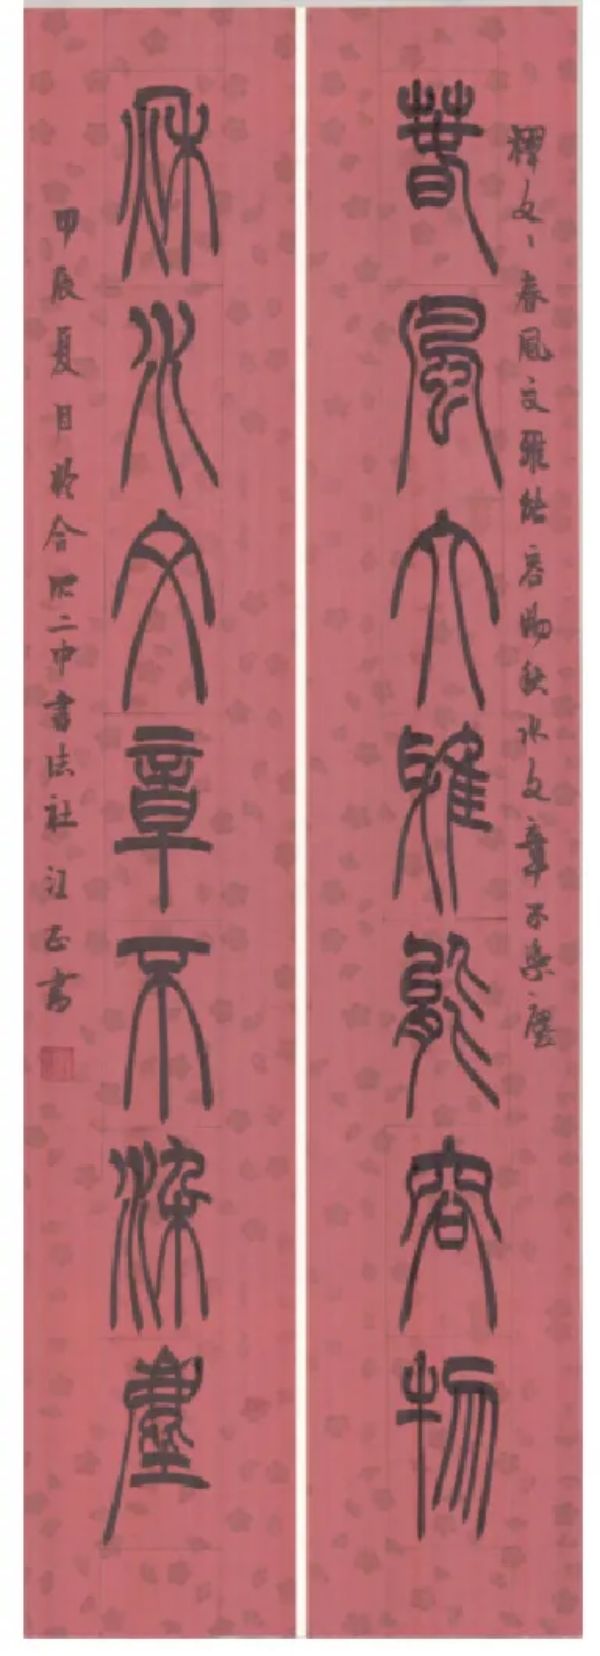 釋文：春風文雅能容物秋水文章不染塵
春風大雅能容物
秋水文章不染塵
甲辰夏月於合肥二中書法社 汪正書